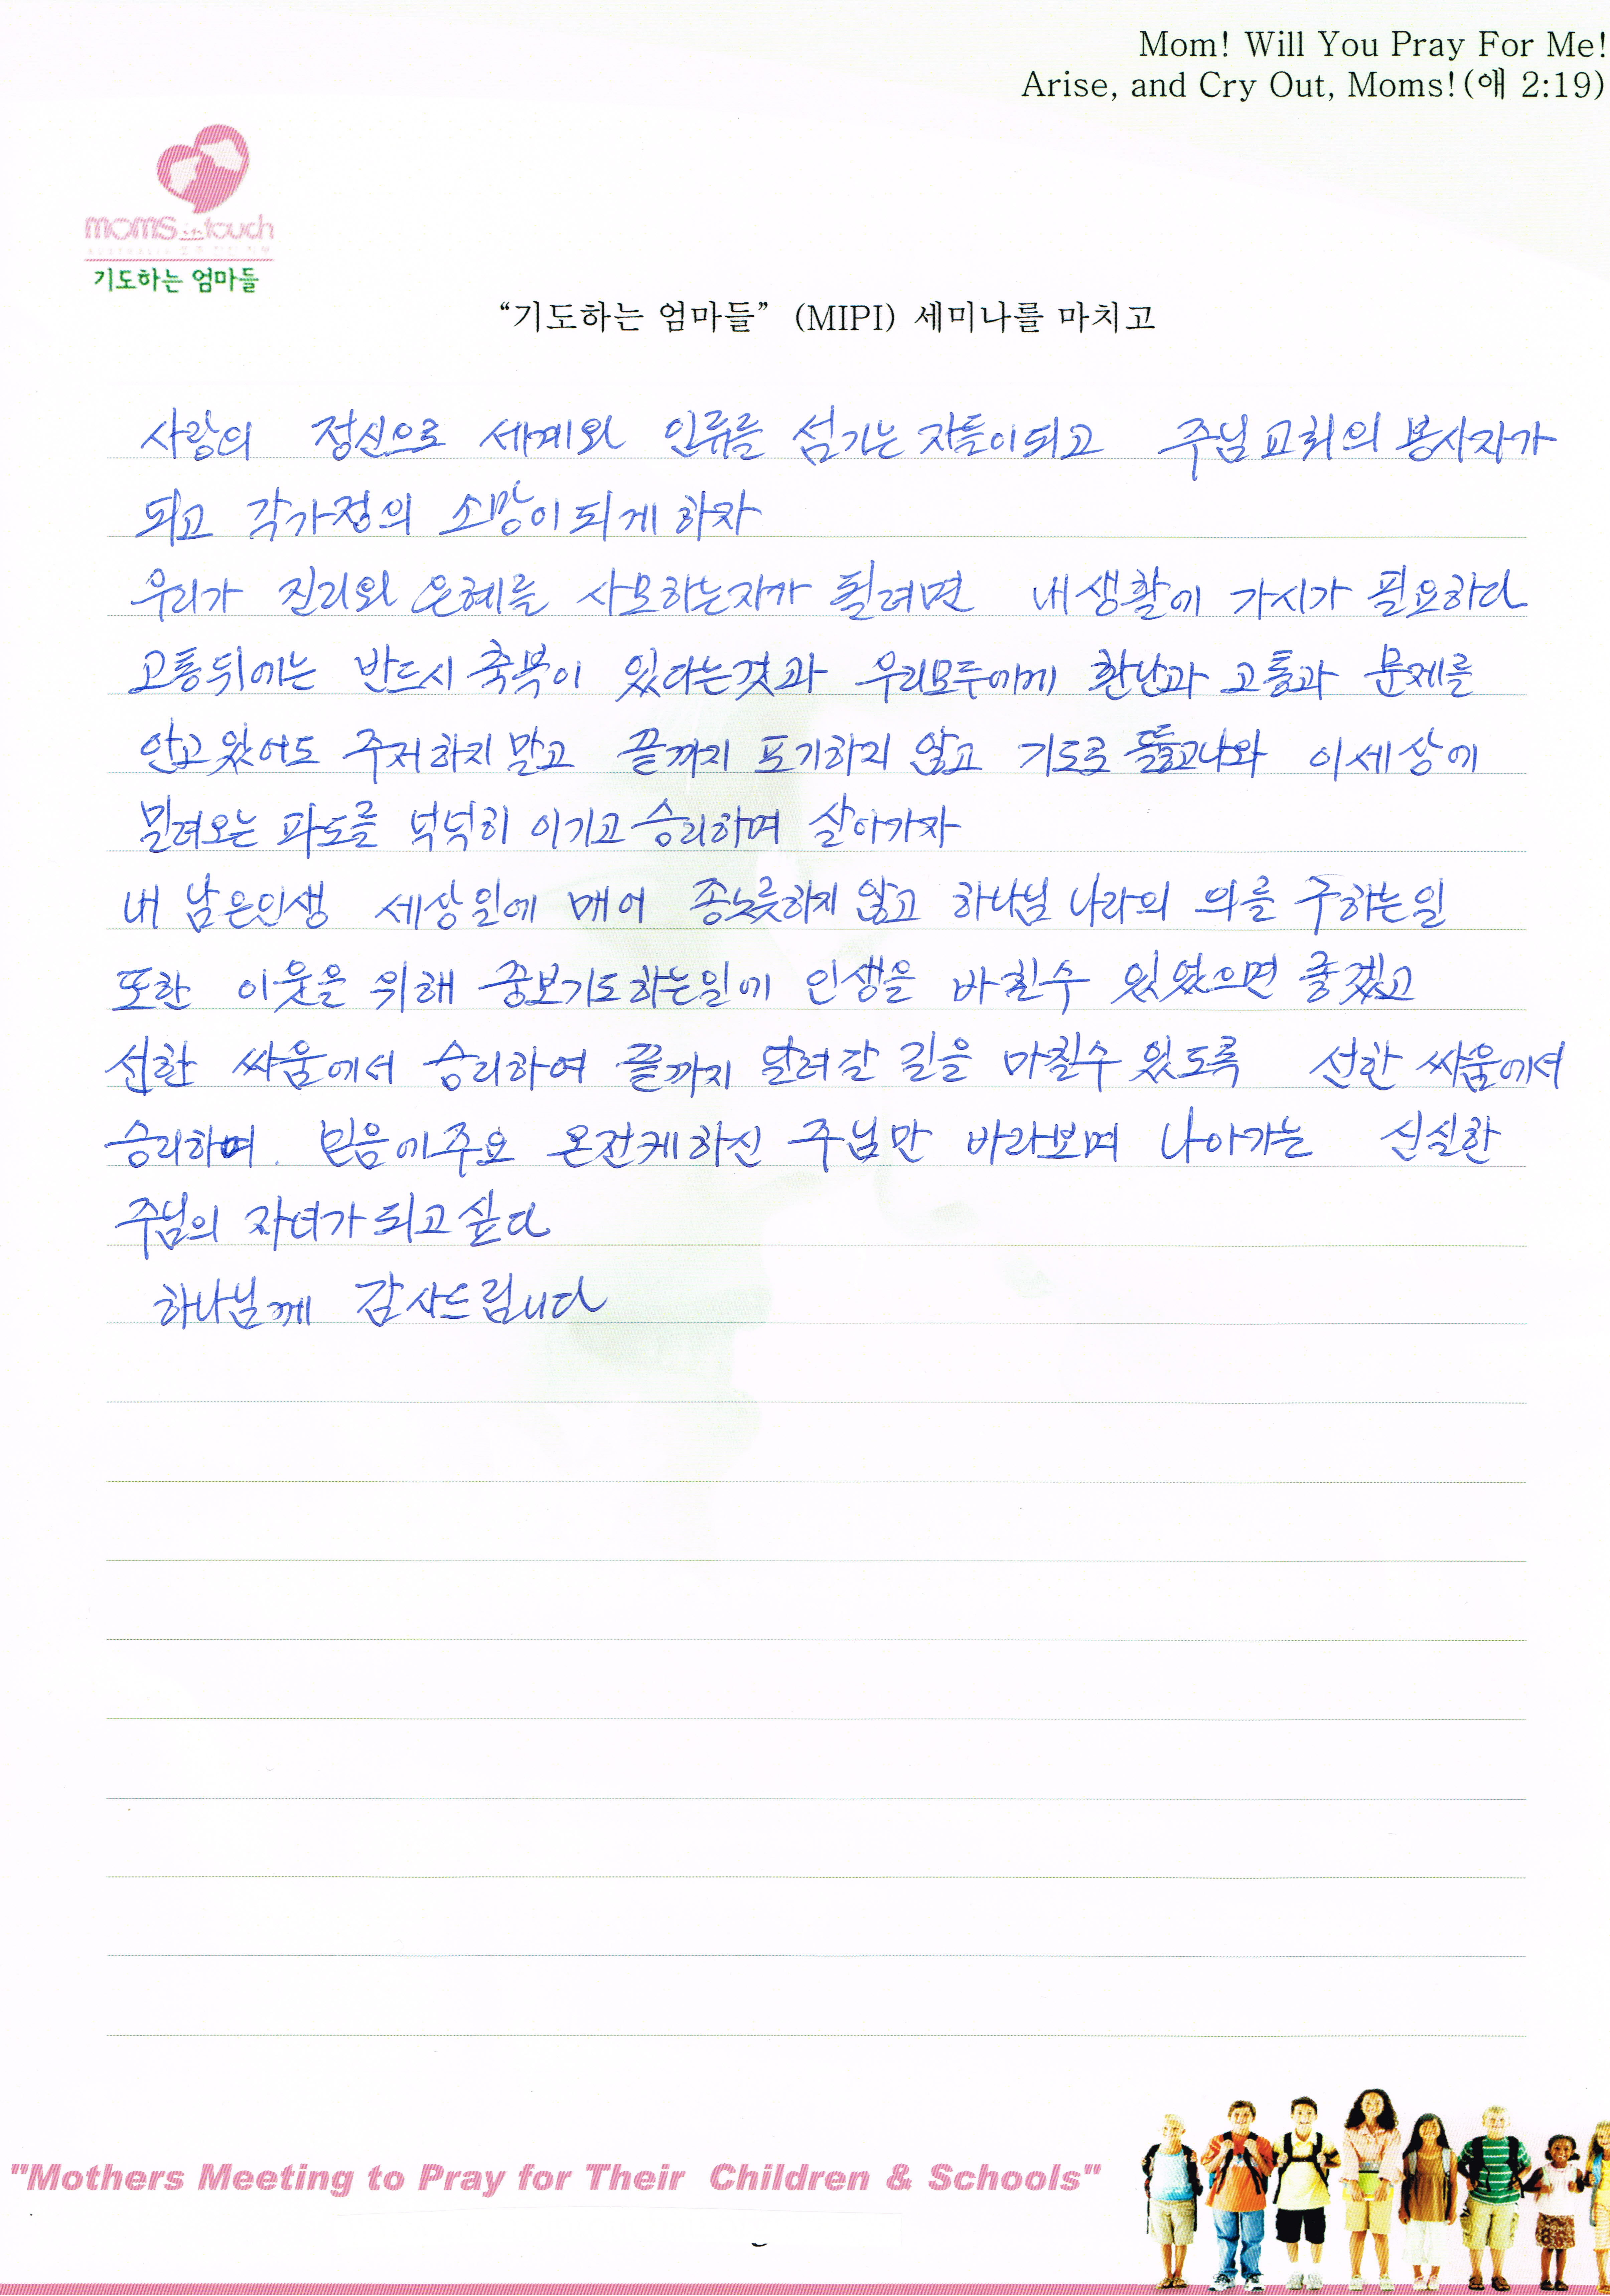 Mom! Will You Pray For Me!
Arise, and Cry Out, Moms!(애 2:19)
moms in touch
기도하는 엄마들
“기도하는 엄마들” (MIPI) 세미나를 마치고
사랑의 정신으로 세계와 인류를 섬기는 자들이되고 주님교회의 봉사자가
되고 각가정의 소망이되게 하자
우리가 진리와 은혜를 사모하는자가 될려면 내생활에 가시가 필요하다
고통뒤에는 반드시 축복이 있다는것과 우리모두에게 환난과 고통과 문제를
안고있어도 주저하지말고 끝까지 포기하지 않고 기도로 뚫고나와 이세상에
밀려오는 파도를 넉넉히 이기고 승리하며 살아가자
내 남은인생 세상일에 매어 종노릇하지 않고 하나님 나라의 의를 구하는일
또한 이웃을 위해 중보기도하는일에 인생을 바칠수 있었으면 좋겠고
선한 싸움에서 승리하여 끝까지 달려갈 길을 마칠수 있도록 선한 싸움에서
승리하며. 믿음에주요 온전케하신 주님만 바라보며 나아가는 신실한
주님의 자녀가 되고싶다
하나님께 감사드립니다
"Mothers Meeting to Pray for Their Children & Schools"